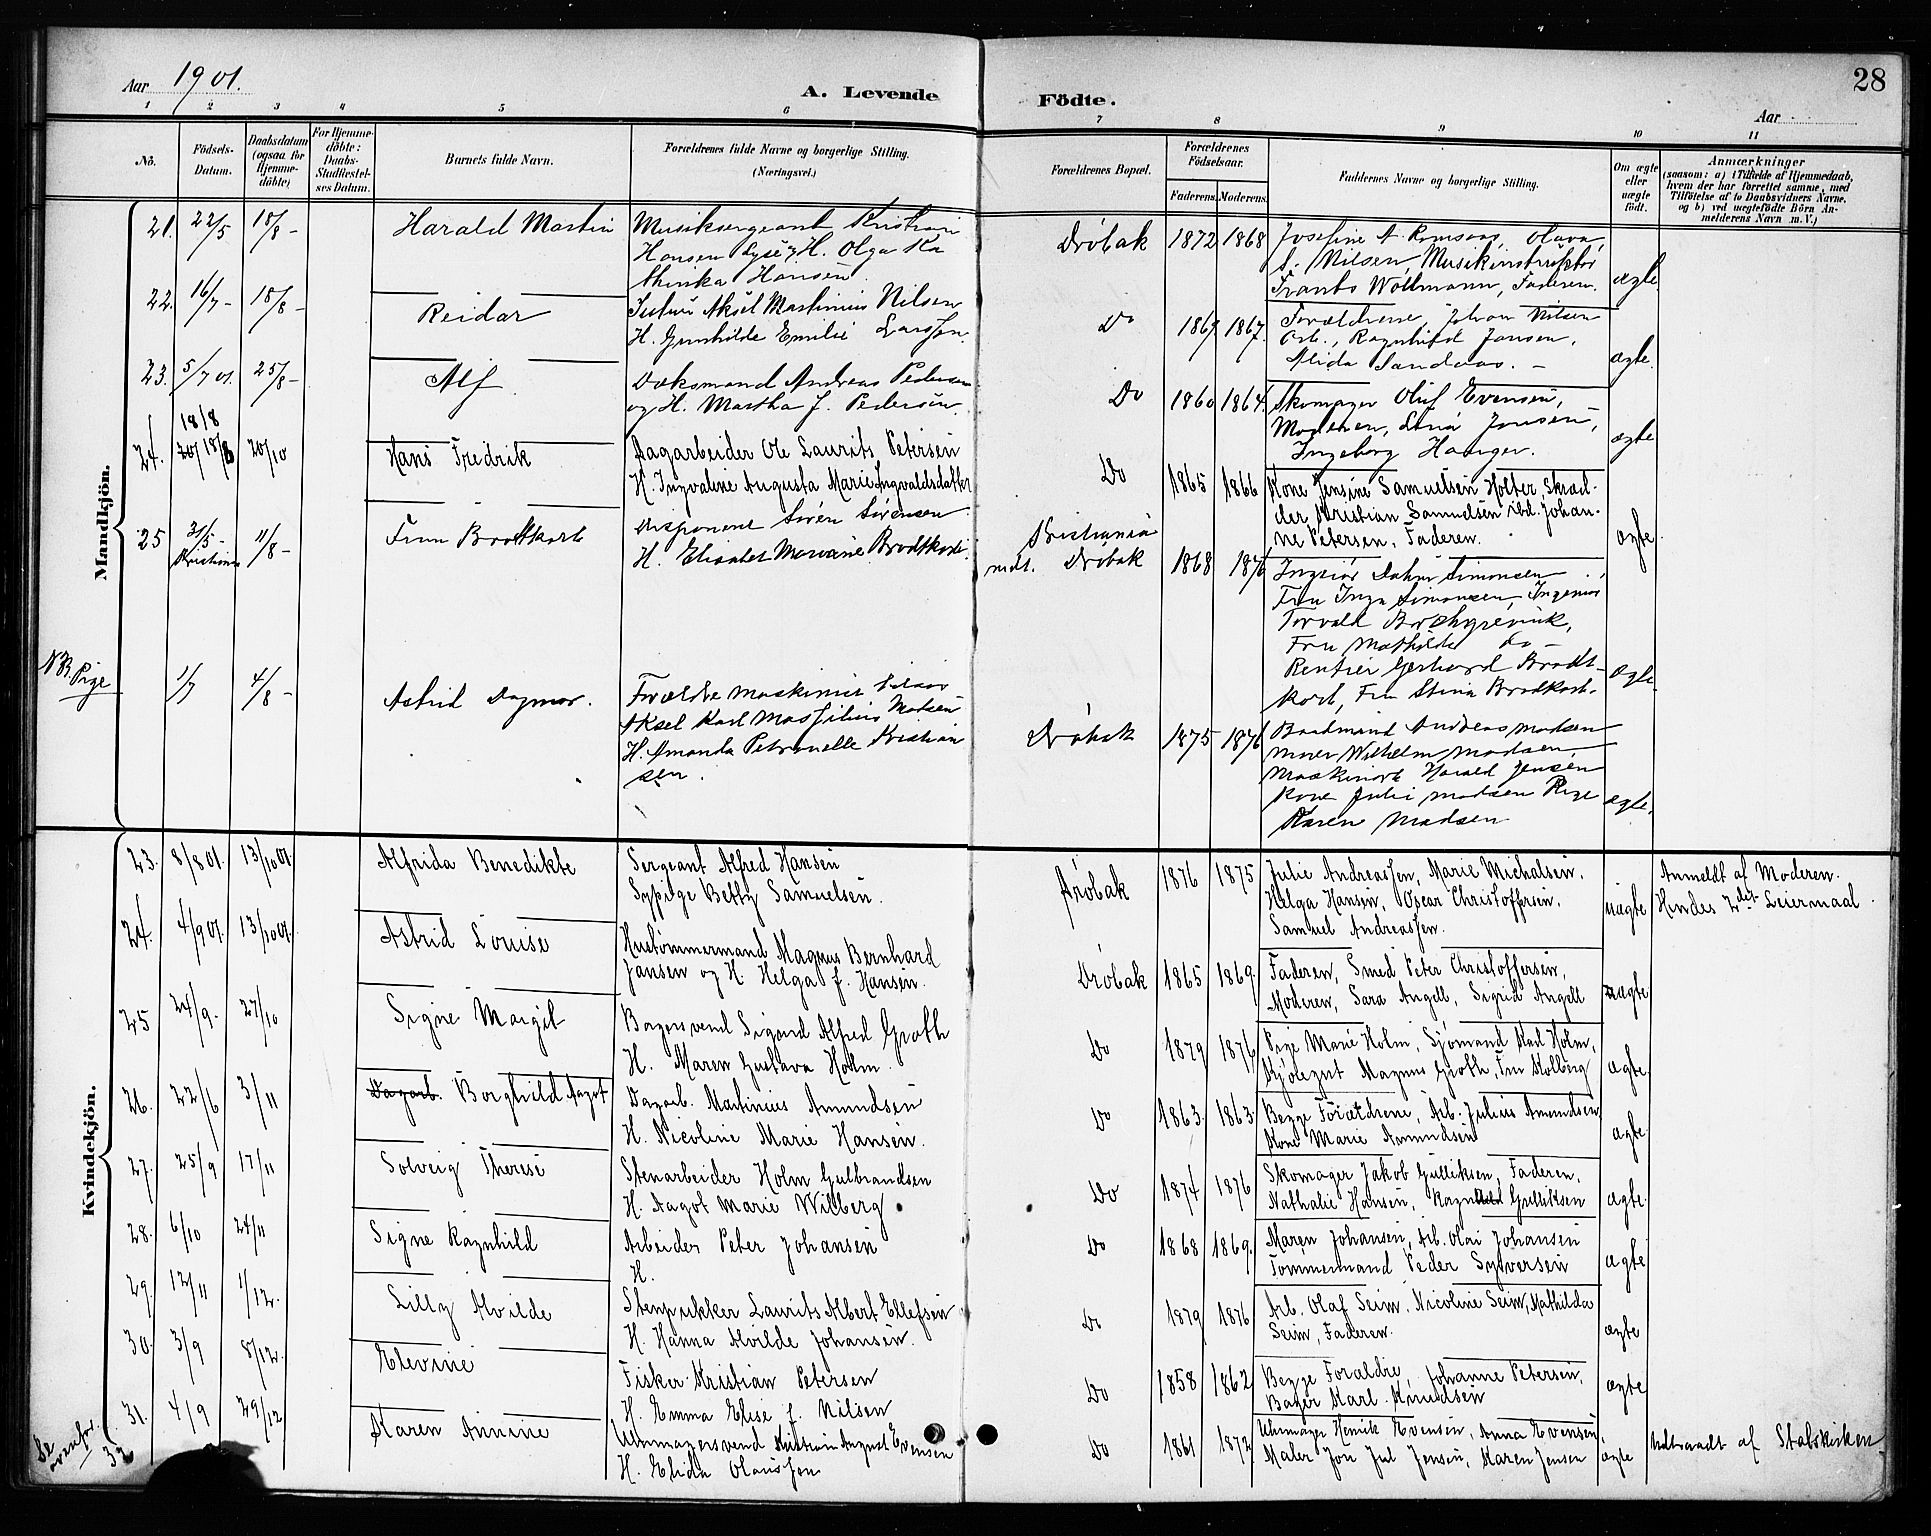 Aar 1901.
A. Levende
Födte.
28
Aar
1 2 3 4 5 6 7 8 9 10 11
No.
Födsels-
Datum.
Daabsdatum
(ogsaa for
Hjemme-
döbte)
For Hjemme-
döbte:
Daabs-
Stadfæstel-
ses Datum.
Barnets fulde Navn.
Forældrenes fulde Navne og borgerlige Stilling.
(Næringsvei.)
Forældrenes Bopæl.
Forældrenes
Födselsaar.
Faderens. Moderens.
Faddernes Navne og borgerlige Stilling.
Om ægte
eller
uægte
født.
Anmærkninger
(saasom: a) i Tilfælde af Hjemmedaab,
hvem der har forrettet samme, med
Tilföielse af to Daabsvidners Navne,
og b) ved uægtefödte Börn An-
melderens Navn m. V.)
Mandkjön.
21. 22/5 18/8 – Harald Martin
Musiksergeant Kristian
Hansen Lyse og H. Olga Ka
thinka Hansen
Dröbak 1872 1868
Josefine A. Romsaas, Olava
Nilsen, Musikinstruktör
Frants Woltmann, Faderen.
ægte
22. 16/7 – 18/8 – Reidar
Aksel Martinius Nilsen
H. Gunhilde Emilie Larssen
Do 1869 1867.
Forældrene, Johan Nilsen
Arb., Ragnhild Jansen,
Alida Sandaas. –
ægte.
23. 5/7 01. 25/8 – Alf
Vaksmand Andreas Pedersen
og H. Martha f. Pedersen.
Do 1860 1864.
Skomager Oluf Evensen,
Moderen, Lina Jonsen,
Ingeborg Haager.
ægte
24. 18/8 20/10 Hans Fredrik
Dagarbeider Ole Laurits Petersen
H. Ingvaline Augusta Marie Ingvaldsdatter
Do 1865 1866
Kone Jensine Samuelsen Holter, Skræd-
der Kristian Samuelsen ibd. Johan-
ne Petersen, Faderen.
ægte
25 31/5 – Kristiania 11/8 – Finn Brodtkorb
Disponent Sören Sörensen
H. Elisabet Mariane Brodtkorb.
Kristiania
mdt. Dröbak 1868 1876
Ingeniör Simonsen
Fru Inga Simonsen, Ingeniör
Torvald Brochgrevink,
Fru Mathilde do –
Rentier Gerhard Brodt-
korb, Fru Stina Brodkorb.
ægte.
NB. Pige 1/7 4/8 – Astrid Dagmar.
Forældre Maskinist
Aksel Karl Madsen
H. Amanda Petronelle Kristian
sen.
Dröbak 1875 1876
Baadmand Andreas Madsen
Murer Wilhelm Madsen,
Maskinarb Harald Jensen
Kone Julie Madsen Pige
Karen Madsen
ægte.
Kvindekjön.
23. 8/8 01. 13/10 01. Alfrida Benedikte
Sergeant Alfred Hansen
Sypige Betty Samuelsen.
Dröbak 1876 1875
Julie Andreassen, Marie Michalsen,
Helga Hansen, Oscar Christoffersen,
Samuel Andreassen.
uægte
Anmeldt af Moderen.
Hendes 2det Leiermaal.
24. 4/9 01. 13/10 01. Astrid Louise
Hustömmermand Magnus Bernhard
Jansen og H. Helga f. Hansen.
Dröbak 1865 1869.
Faderen, Smed Peter Christoffersen,
Moderen, Sara Angell, Sigrid Angell
ægte
25 24/9 – 27/10 Signe Margit
Bagersvend Sigurd Alfred Groth
H. Maren Gustava Holm.
Do 1879 1876
Pige Marie Holm, Sjömand Karl Holm,
Magnus Groth, Fru Kolberg
ægte
26. 22/6 3/11 Dagarb. Borghild Aagot
Dagarb. Martinius Amundsen
H. Nicoline Marie Hansen.
Do 1863. 1863.
Begge Forældrene, Arb. Julius Amundsen
Kone Marie Amundsen
ægte
27. 25/9 17/11 Solveig Therese
Stenarbeider Holm Gulbrandsen
H. Aagot Marie Wilberg
Do 1874 1876
Skomager Jakob Gulliksen, Faderen,
Nathalie Hansen, Ragnhild Gulliksen
ægte
28. 6/10 24/11 Signe Ragnhild
Arbeider Peter Johansen
H.
Do 1868 1869.
Maren Johansen, Arb. Olai Johansen
Tömmermand Peder Syversen
ægte
29 12/11 1/12. Lilly Alvilde
Stenpukker Laurits Albert Ellefsen
H. Hanna Alvilde Johansen.
Do 1879 1876
Arb. Olaf Seim, Nicoline Seim, Mathilda
Seim, Faderen.
ægte
30. 3/9 8/12. Elevine
Fisker Kristian Petersen
H. Emma Elise f. Nilsen
Do 1858 1862
Begge Forældre, Johanne Petersen,
Bager Karl Knudsen
ægte
31. 4/9 29/12 Karen Annine
Uhrmagersvend Kristian August Evensen
H. Elida Olaussen
Do 1861 1872
Uhrmager Henrik Evensen, Anna Evensen,
Maler Jon Jul Jensen, Karen Jensen
ægte
Udtraadt af Statskirken
Se ovenfor.
32